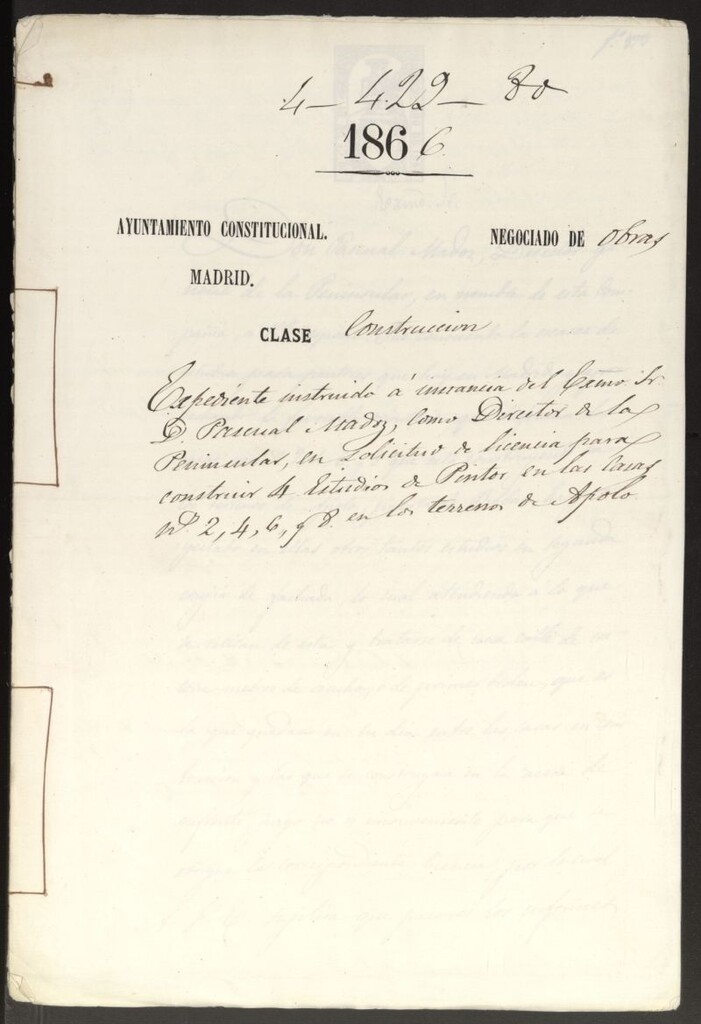 4 - 422 - 80
1866
AYUNTAMIENTO CONSTITUCIONAL.
NEGOCIADO DE Obras
MADRID.
CLASE Construccion
Expediente instruido á instancia del Exmo. Sr.
D. Pascual Madoz, como Director de la
Peninsular, en solicitud de licencia para
construir 4 Estudios de Pintor en las Casas
nos. 2, 4, 6, y 8. en los terrenos de Apolo